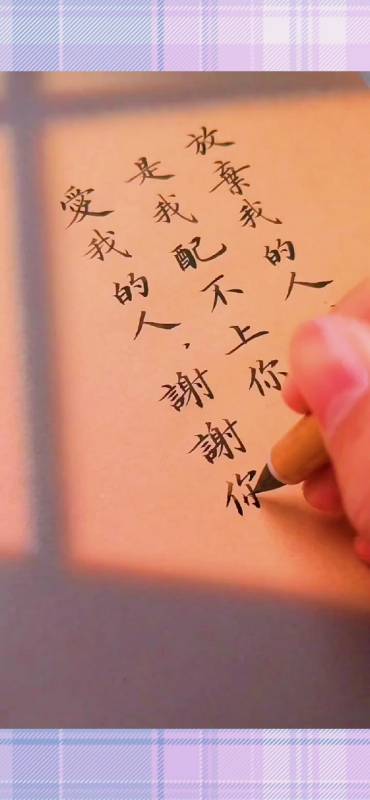 放棄我的人
是我配不上你
愛我的人，謝謝你